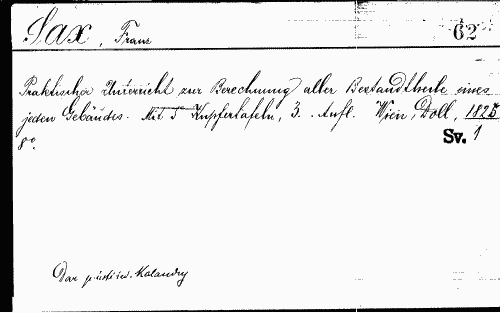 Sax, Franz
62
Praktischer Unterricht zur Berechnung aller Bestandtheile eines
jeden Gebäudes. Mit 5 Kupfertafeln, 3. Aufl. Wien, Doll, 1825
8°.
Sv. 1
Dar